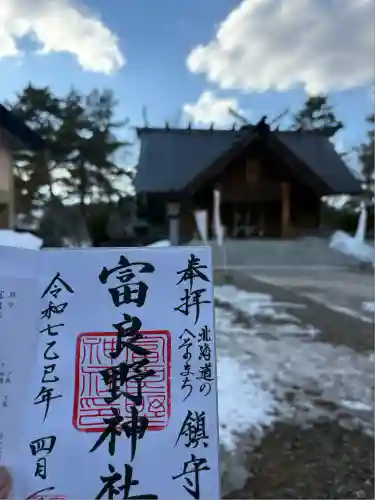 奉拝
北海道の
へそのまち
鎮守
富良野神社
令和七乙巳年
四月